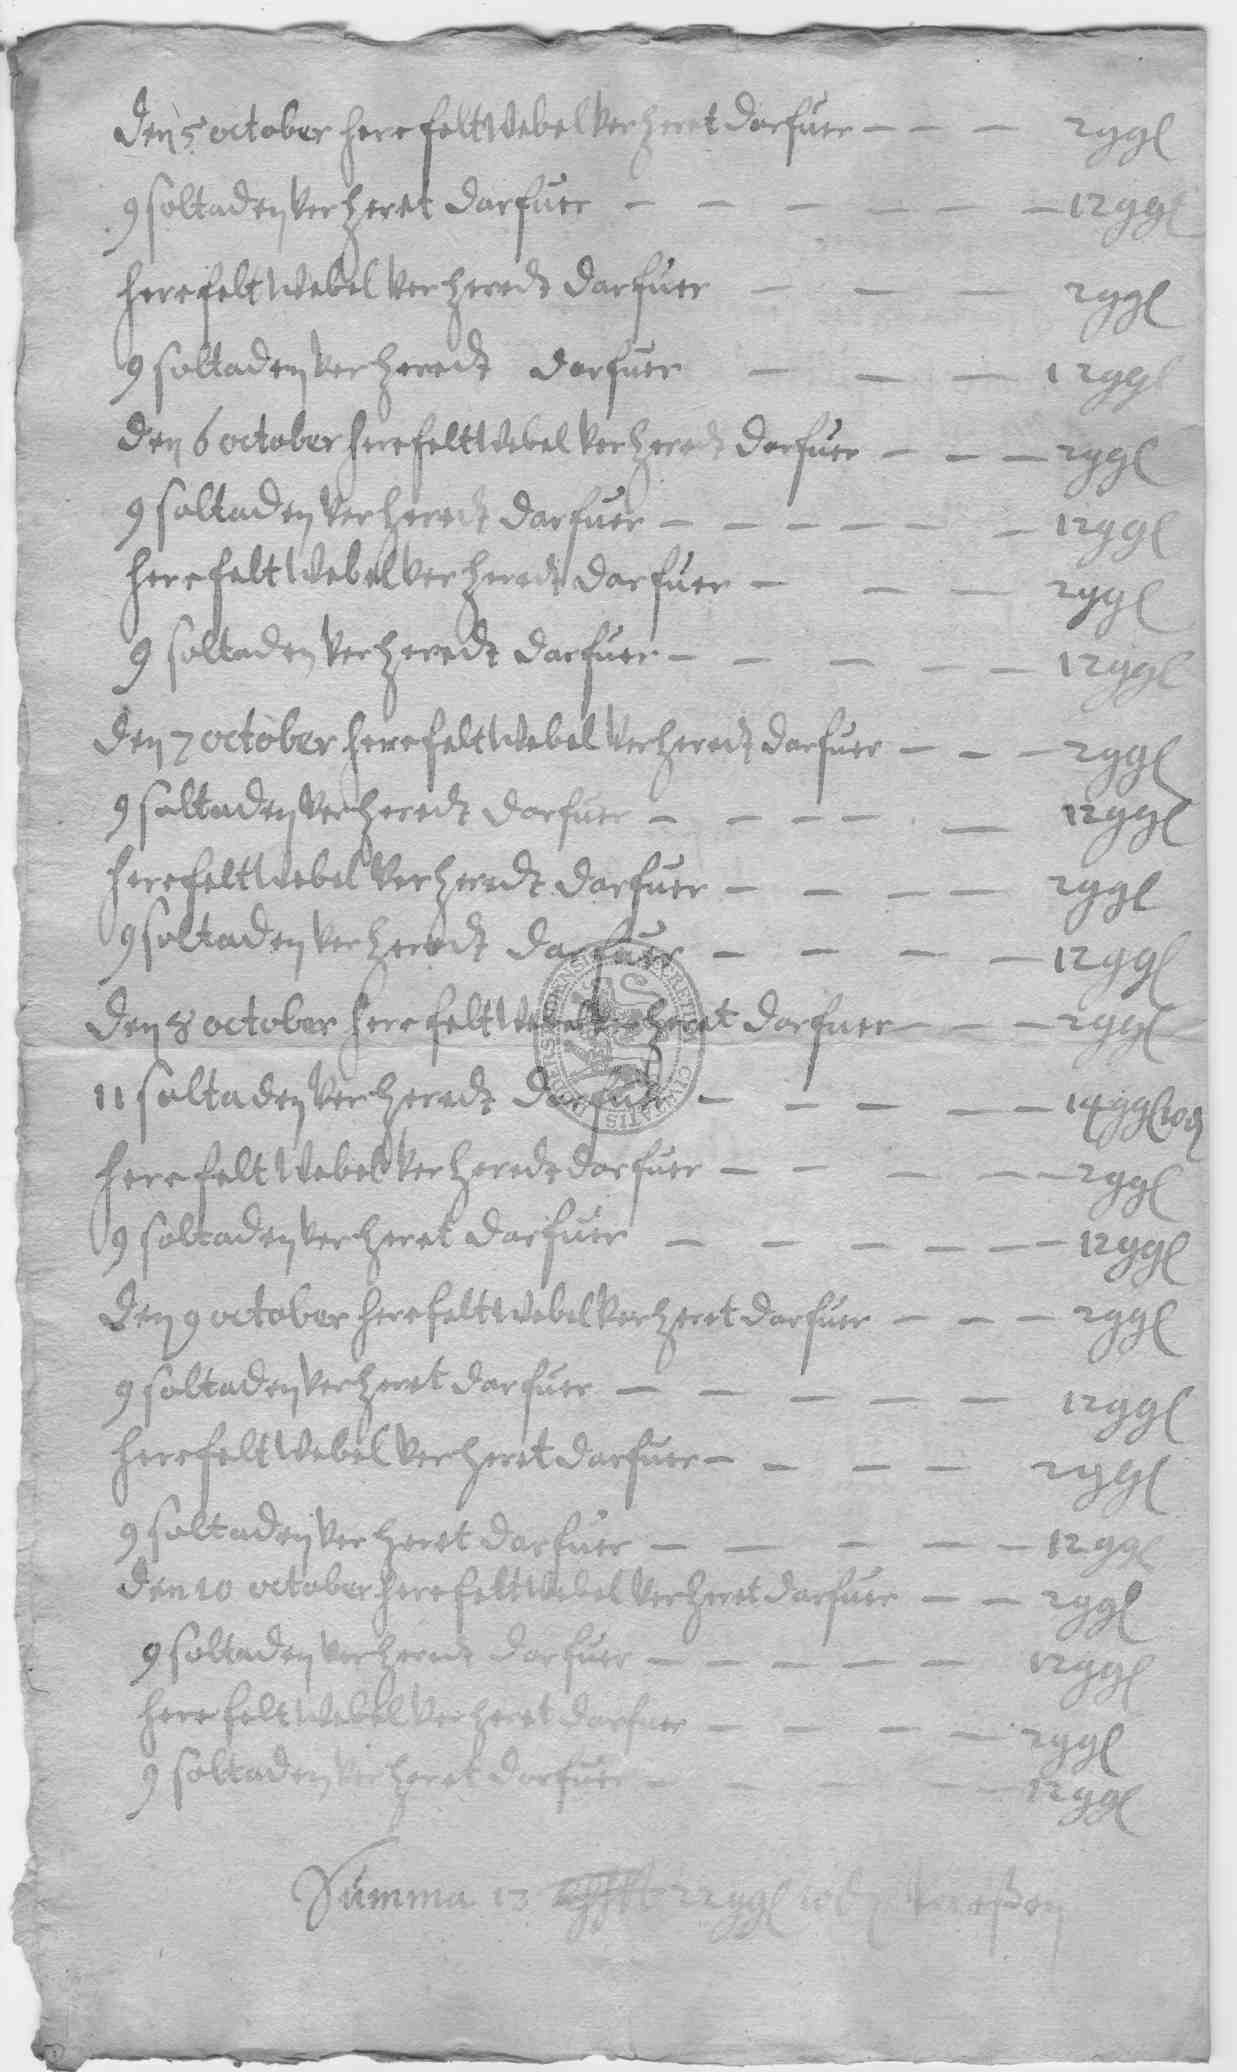 Den 5 october herr felt Webel ver heret darfuer — — — 2 ggl
9 soltaden ver heret darfuer — — — — — — 12 ggl
herr felt Webel ver heredt darfuer — — — 2 ggl
9 soltaden ver heredt darfuer — — — 12 ggl
Den 6 october herr felt Webel ver heredt darfuer — — — 2 ggl
9 soltaden ver heredt darfuer — — — — — — 12 ggl
herr felt Webel ver heredt darfuer — — — 2 ggl
9 soltaden ver heredt darfuer — — — — — 12 ggl
Den 7 october herr felt Webel ver heredt darfuer — — — 2 ggl
9 soltaden ver heredt darfuer — — — — — 12 ggl
herr felt Webel ver heredt darfuer — — — — 2 ggl
9 soltaden ver heredt darfuer — — — — 12 ggl
Den 8 october herr felt Webel ver heret darfuer — — — 2 ggl
11 soltaden ver heredt darfuer — — — — — 14 ggl 10 d
herr felt Webel ver heredt darfuer — — — — — 2 ggl
9 soltaden ver heret darfuer — — — — — — 12 ggl
Den 9 october herr felt Webel ver heret darfuer — — — 2 ggl
9 soltaden ver heret darfuer — — — — — 12 ggl
herr felt Webel ver heret darfuer — — — — 2 ggl
9 soltaden ver heret darfuer — — — — — 12 ggl
Den 10 october herr felt Webel ver heret darfuer — — 2 ggl
9 soltaden ver heredt darfuer — — — — — 12 ggl
herr felt Webel ver heret darfuer — — — — 2 ggl
9 soltaden ver heret darfuer — — — — 12 ggl
Summa 13 22 ggl 10 d